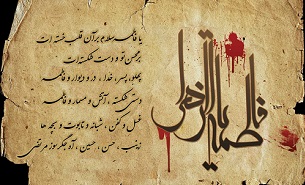 یا فاطمة الزهرا
یا فاطمه سلام بر آن قلب خسته ات
بر محسن تو و دست شکسته ات
پهلو، پسر، خدا، در و دیوار و فاطمه
دست شکسته، آتش و مسمار و فاطمه
غسل و کفن، شبانه و تابوت و بچه ها
زینب، حسن، حسین، آه جگر سوز مرتضی